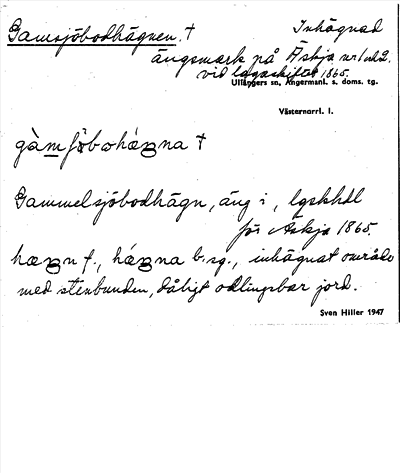 Gamsjöbodhägnen. † Inhägnad
ängsmark på Äskja nr 1 och 2.
vid lagaskiftet 1865.
Ullångers sn, Ångermanl. s. doms. tg.
Västernorrl. l.
†
Gammelsjöbodhägn, äng i, lgskhtl
för Äskja 1865.
f., b. sg., inhägnat område
med stenbunden, dåligt odlingsbar jord.
Sven Hiller 1947